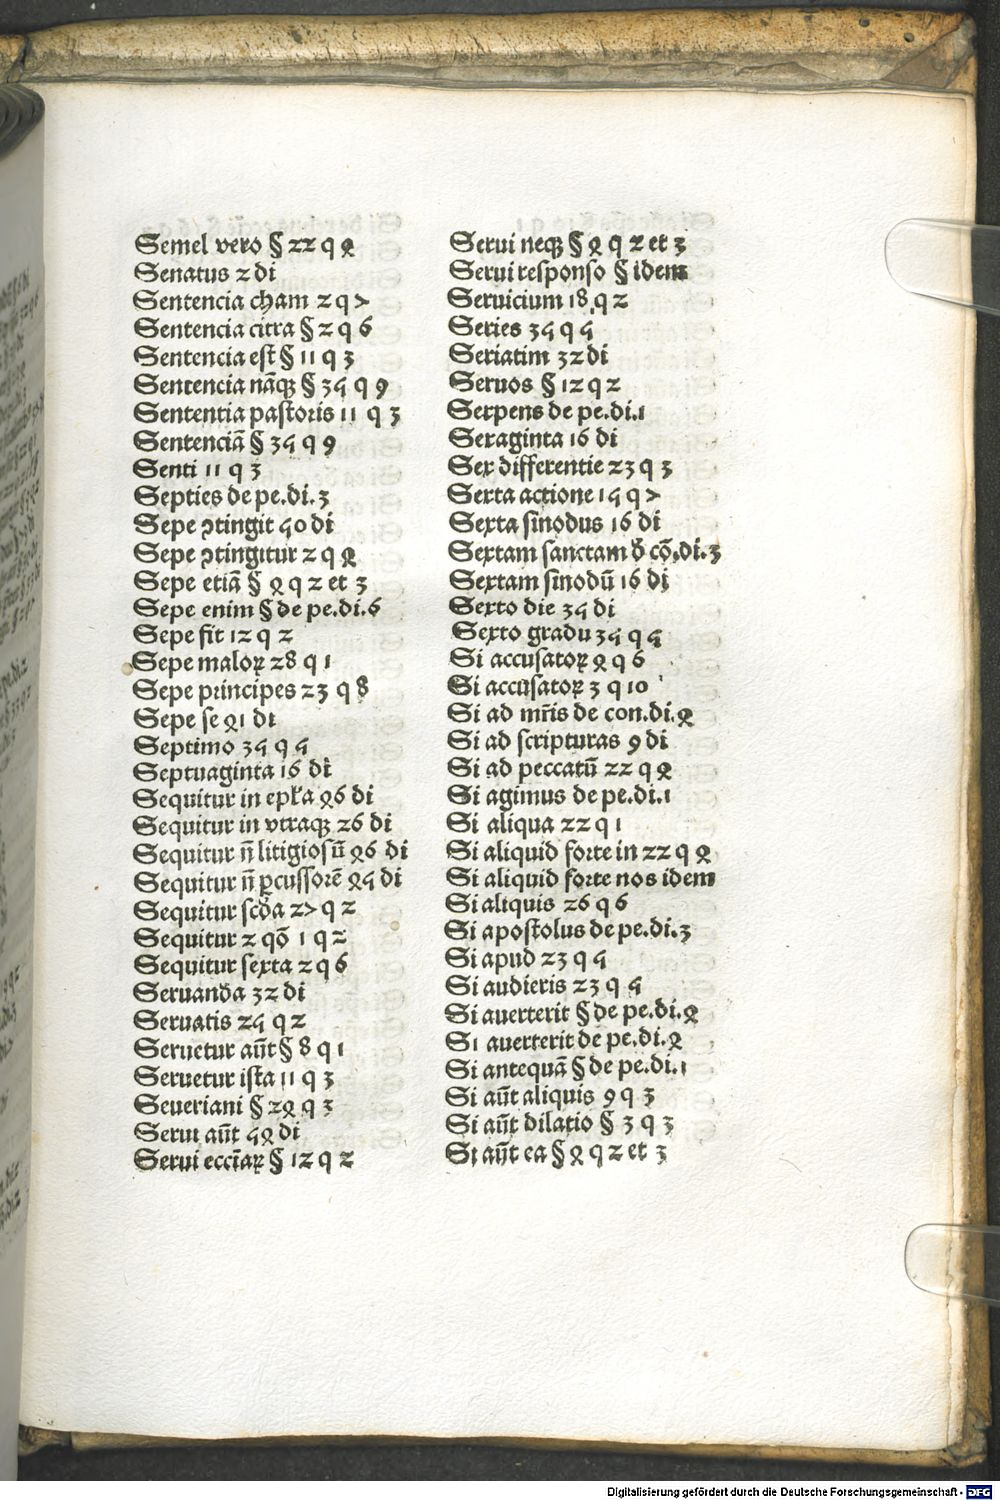 Semel vero § 22 q 4
Senatus 2 di
Sentencia cham 2 q 7
Sentencia citra § 2 q 6
Sentencia est § 11 q 3
Sentencia nāqꝫ § 35 q 9
Sententia pastoris 11 q 3
Sentenciā § 35 q 9
Senti 11 q 3
Septies de pe.di.3
Sepe ↄtingit 50 di
Sepe ↄtingitur 2 q 4
Sepe etiā § 4 q 2 et 3
Sepe enim § de pe.di.6
Sepe fit 12 q 2
Sepe maloꝝ 28 q 1
Sepe principes 23 q 8
Sepe se 41 di
Septimo 35 q 5
Septuaginta 16 di
Sequitur in epl'a 46 di
Sequitur in vtraqꝫ 26 di
Sequitur n̄ litigiosū 46 di
Sequitur n̄ ꝑcussorē 45 di
Sequitur scd'a 27 q 2
Sequitur 2 qō 1 q 2
Sequitur sexta 2 q 6
Seruanda 32 di
Seruatis 25 q 2
Seruetur aūt § 8 q 1
Seruetur ista 11 q 3
Seueriani § 24 q 3
Serui aūt 54 di
Serui ecciaꝝ § 12 q 2
Serui neqꝫ § 4 q 2 et 3
Serui responso § idem
Seruicium 18 q 2
Series 35 q 5
Seriatim 32 di
Seruos § 12 q 2
Serpens de pe.di.1
Sexaginta 16 di
Sex differentie 23 q 3
Sexta actione 15 q 7
Sexta sinodus 16 di
Sextam sanctam d' cō.di.3
Sextam sinodū 16 di
Sexto die 35 di
Sexto gradu 35 q 5
Si accusatoꝝ 4 q 6
Si accusatoꝝ 3 q 10
Si ad mr̄is de con.di.4
Si ad scripturas 9 di
Si ad peccatū 22 q 4
Si agimus de pe.di.1
Si aliqua 22 q 1
Si aliquid forte in 22 q 4
Si aliquid forte nos idem
Si aliquis 26 q 6
Si apostolus de pe.di.3
Si apud 23 q 5
Si audieris 23 q 5
Si auerterit § de pe.di.4
Si auerterit de pe.di.4
Si antequā § de pe.di.1
Si aūt aliquis 9 q 3
Si aūt dilatio § 3 q 3
Si aūt ea § 4 q 2 et 3
Digitalisierung gefördert durch die Deutsche Forschungsgemeinschaft - DFG